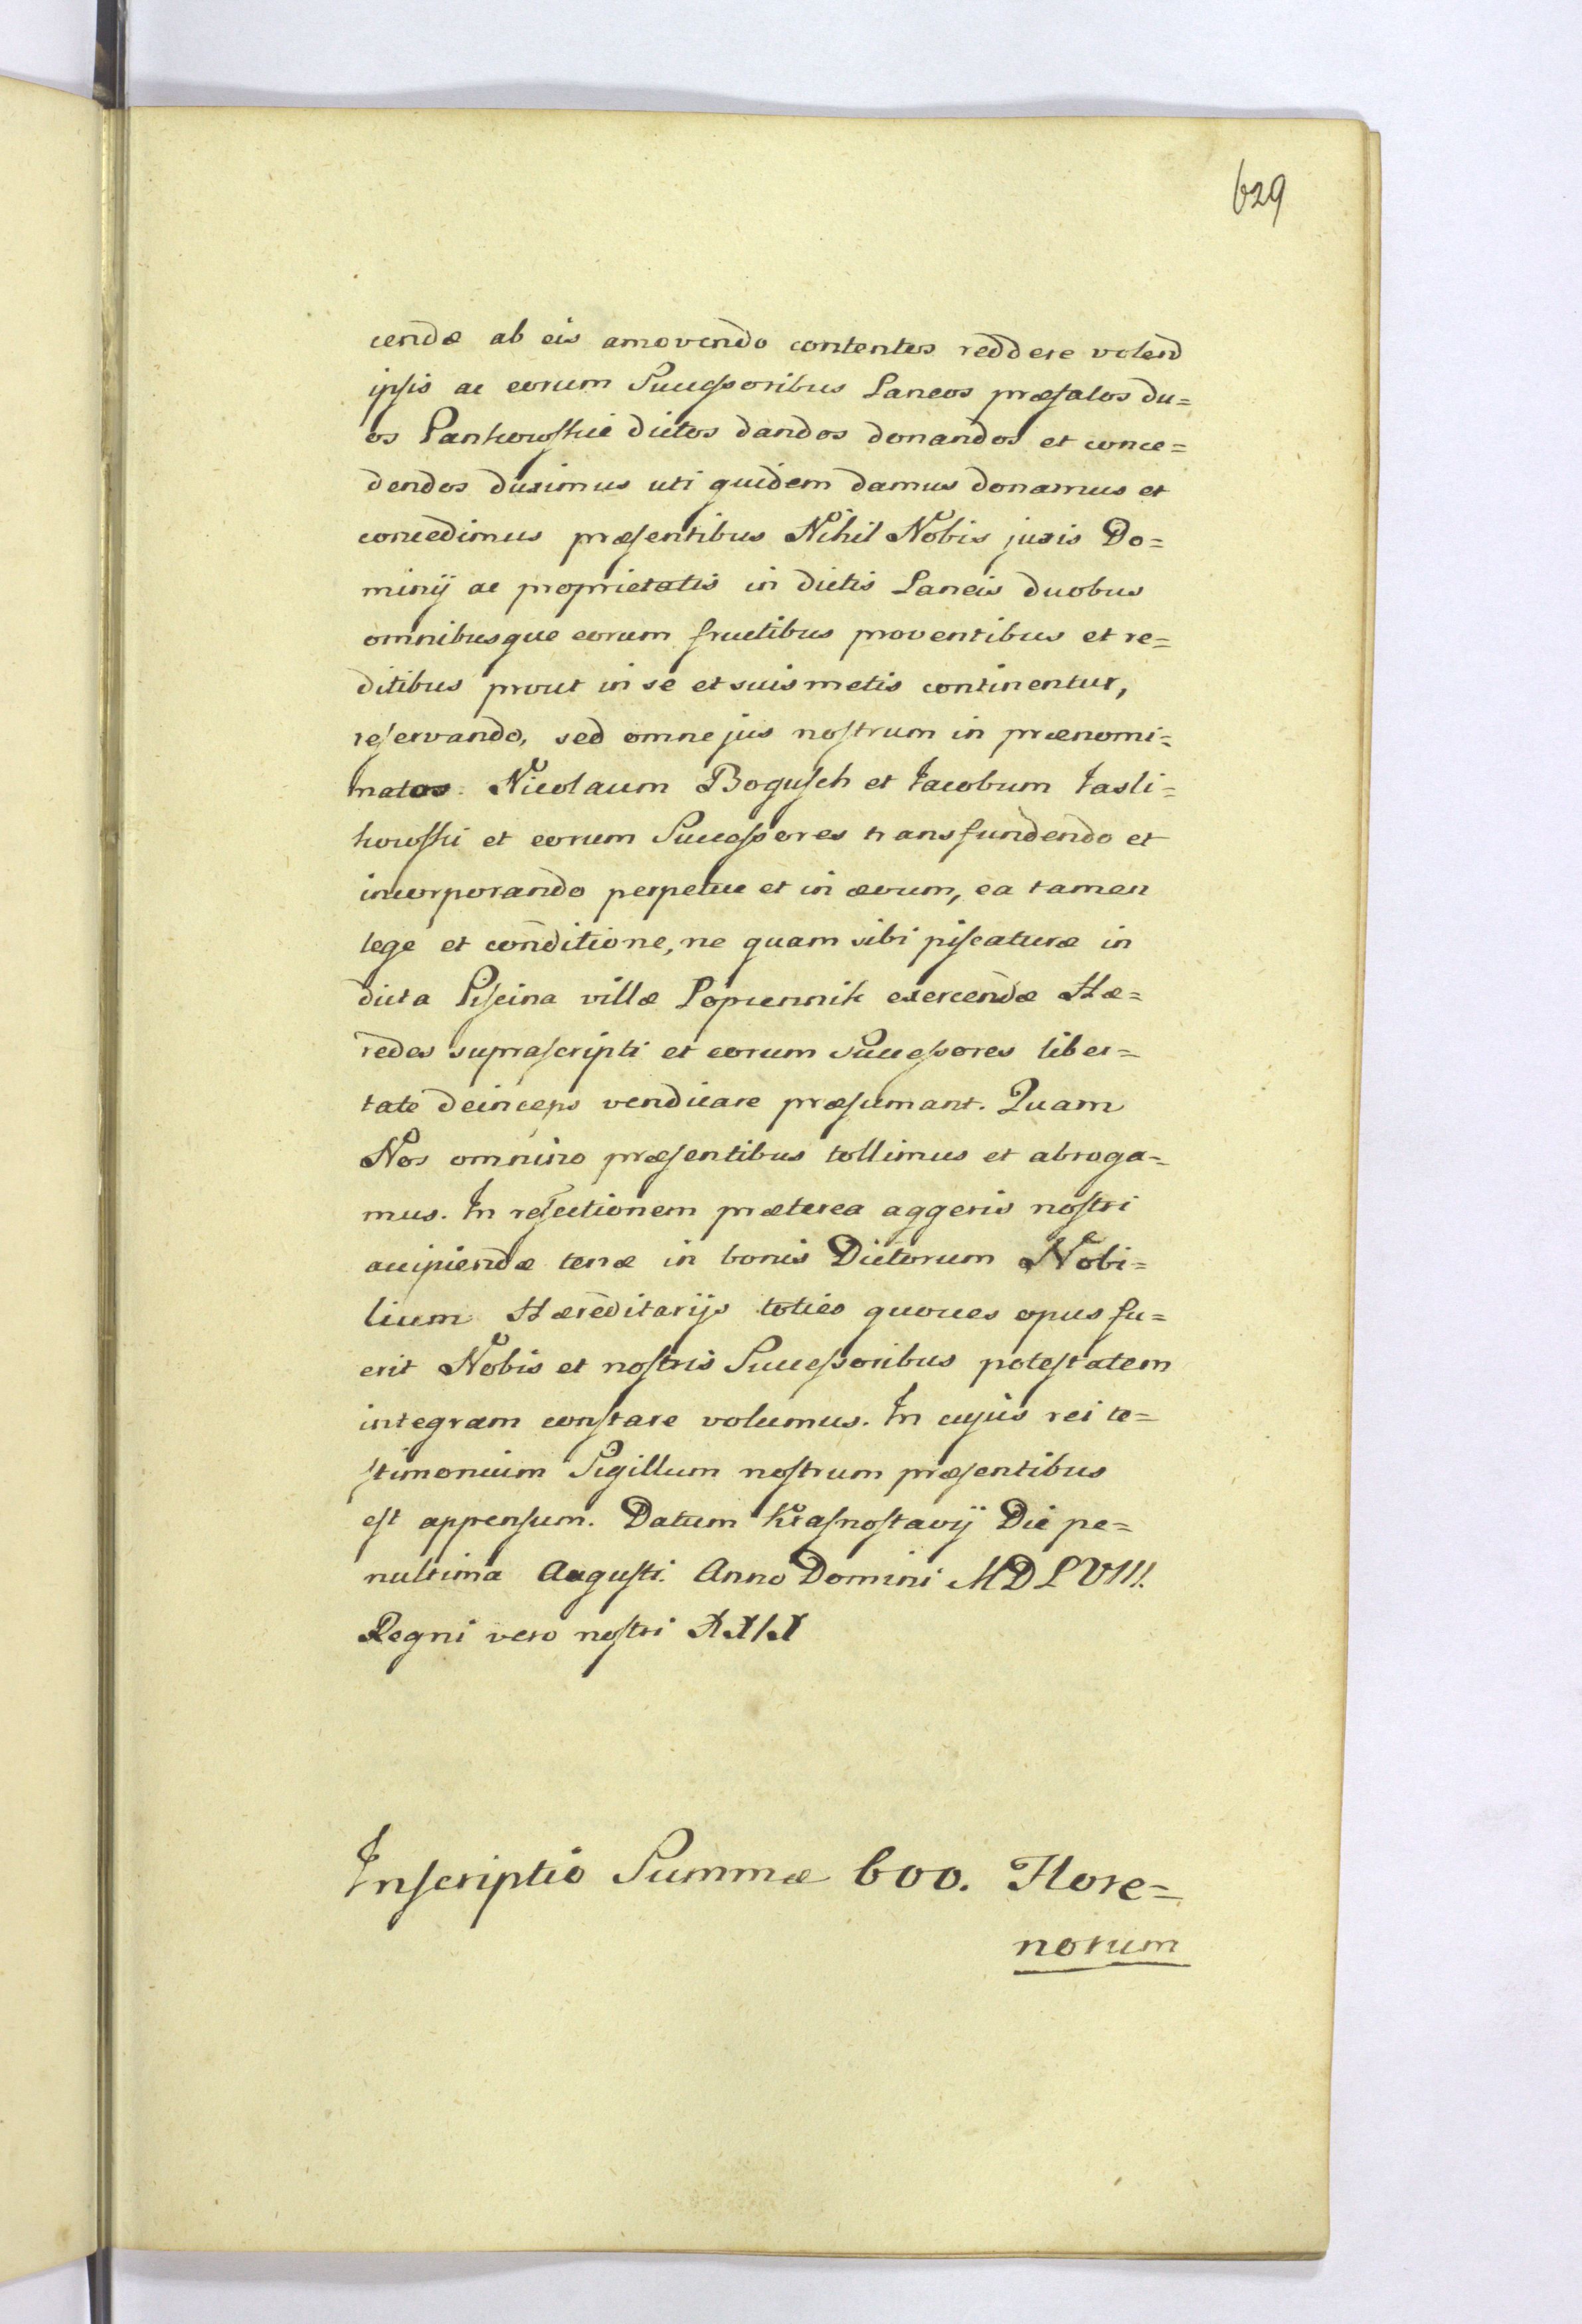 629
cendæ ab eis amovendo contentes reddere volend
ipsis ac eorum Successoribus Laneos præfatos du=
os Pankowskie dictos dandos donandos et conce=
dendos duximus uti quidem damus donamus et
concedimus præsentibus Nihil Nobis juris Do=
minij ac proprietatis in dictis Laneis duobus
omnibusque eorum fructibus proventibus et re=
ditibus prout in se et suis metis continentur,
reservando, sed omne jus nostrum in prænomi=
natos. Nicolaum Bogusch et Jacobum Jasli=
kowski et eorum Successores transfundendo et
incorporando perpetue et in ævum, ea tamen
lege et conditione, ne quam sibi piscaturæ in
dicta Piscina villæ Popiennik exercendæ Hæ=
redes suprascripti et eorum successores liber=
tate deinceps vendicare præsumant. Quam
Nos omnino præsentibus tollimus et abroga=
mus. In refectionem præterea aggeris nostri
accipiendæ terræ in bonis Dictorum Nobi=
lium Hæreditarijs toties quoties opus fu=
erit Nobis et nostris Successoribus potestatem
integram constare volumus. In cujus rei te=
stimonium Sigillum nostrum præsentibus
est appensum. Datum Krasnostavij Die pe=
nultima Augusti. Anno Domini MDLVIII.
Regni vero nostri XXIX
Inscriptio Summæ 600. Flore=
norum